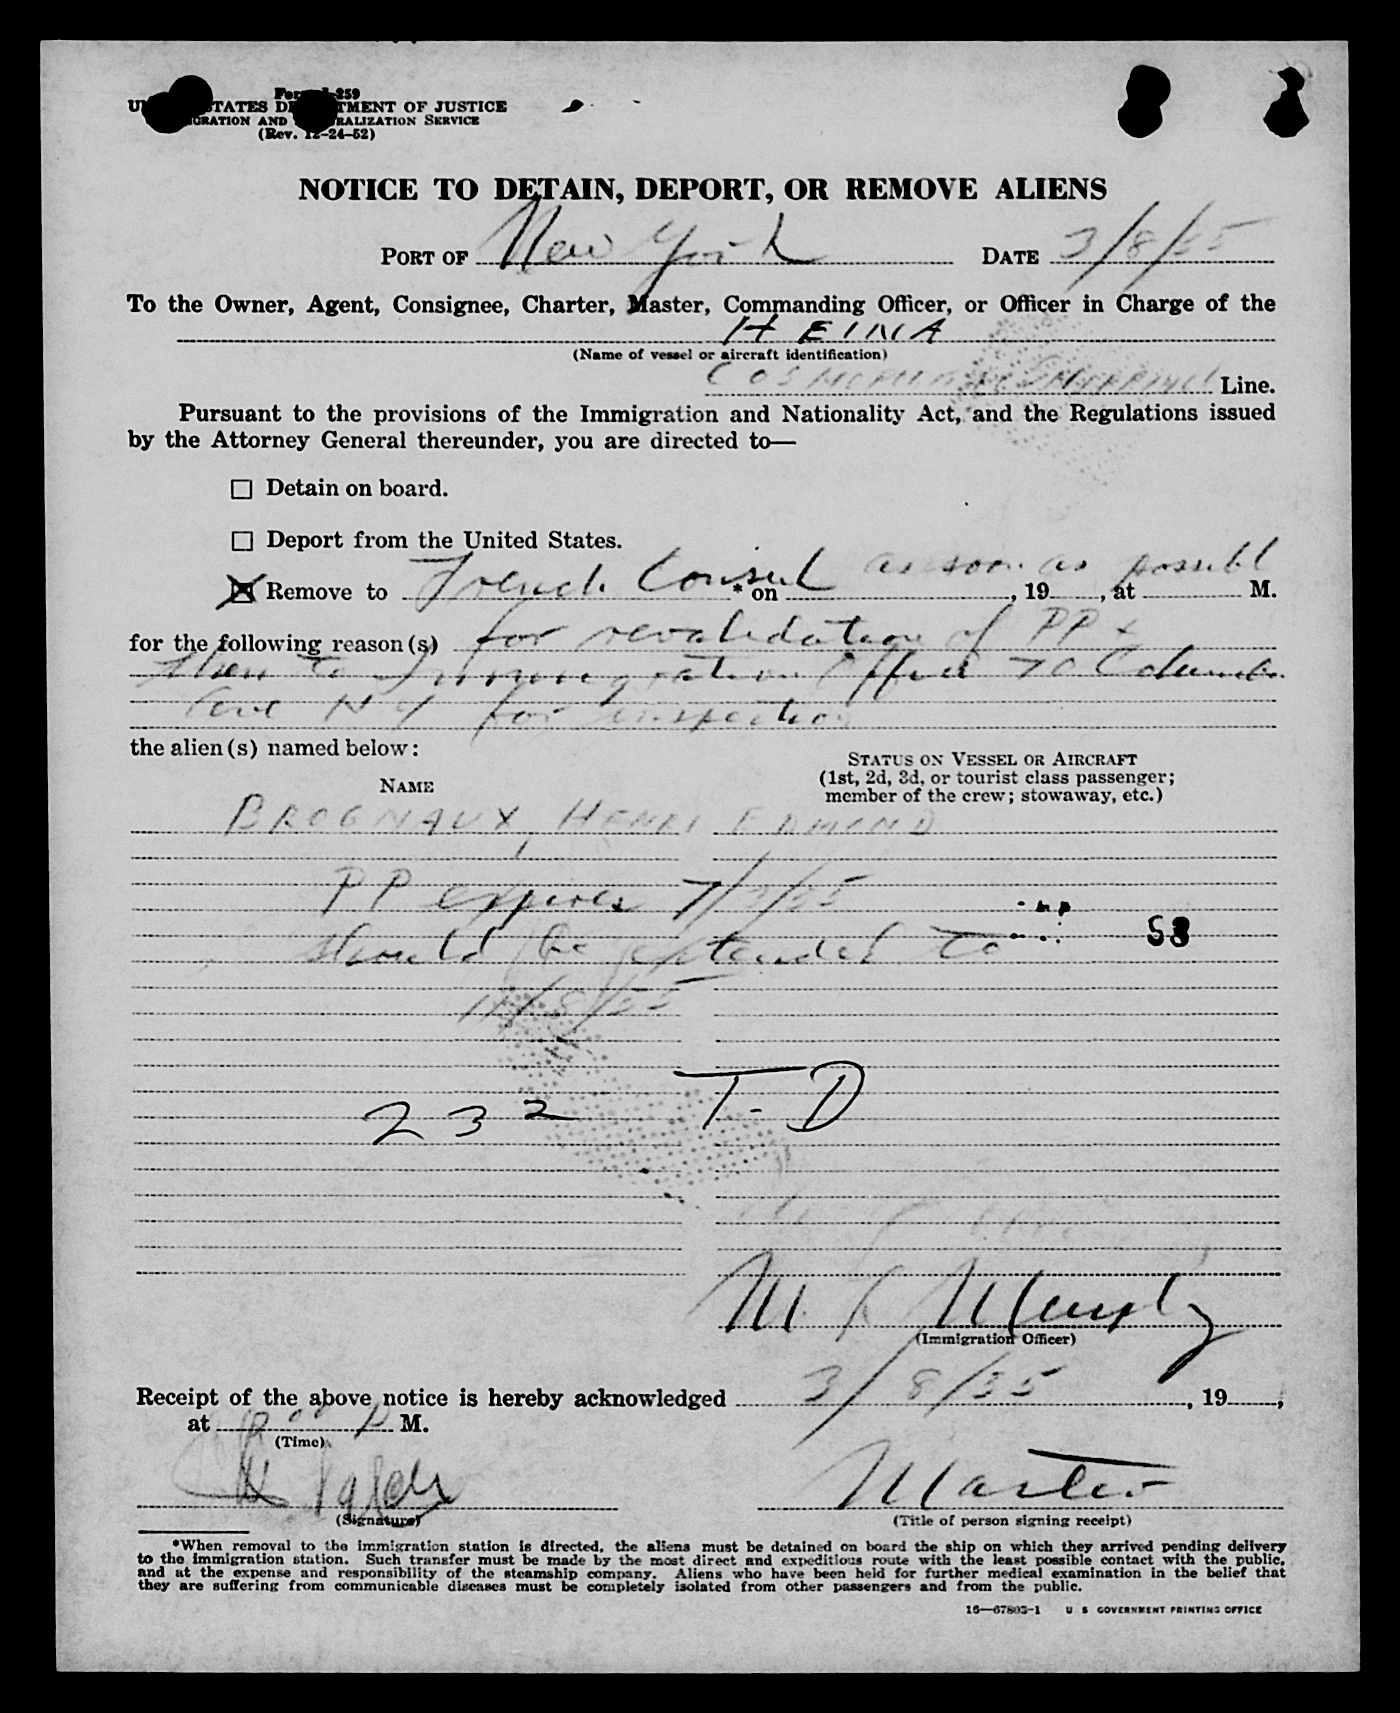 Form I-259
UNITED STATES DEPARTMENT OF JUSTICE
IMMIGRATION AND NATURALIZATION SERVICE
(Rev. 12-24-52)
NOTICE TO DETAIN, DEPORT, OR REMOVE ALIENS
PORT OF New York DATE 3/8/55
To the Owner, Agent, Consignee, Charter, Master, Commanding Officer, or Officer in Charge of the
HEINA
(Name of vessel or aircraft identification)
Line.
Pursuant to the provisions of the Immigration and Nationality Act, and the Regulations issued
by the Attorney General thereunder, you are directed to—
☐ Detain on board.
☐ Deport from the United States.
☒ Remove to French Consul * on as soon as possibl, 19, at M.
for the following reason(s) for revalidation of PP &
then to Immigration Office 70 Columbus
Ave N Y for inspection
the alien(s) named below:
NAME
STATUS ON VESSEL OR AIRCRAFT
(1st, 2d, 3d, or tourist class passenger;
member of the crew; stowaway, etc.)
BROGNAUX, HENRI EDMOND
PP expires 7/3/55
should be extended to
11/8/55
53
232 T-D
M Murphy
(Immigration Officer)
Receipt of the above notice is hereby acknowledged 3/8/55, 19,
at P M.
(Time)
(Signature)
Master
(Title of person signing receipt)
*When removal to the immigration station is directed, the aliens must be detained on board the ship on which they arrived pending delivery
to the immigration station. Such transfer must be made by the most direct and expeditious route with the least possible contact with the public,
and at the expense and responsibility of the steamship company. Aliens who have been held for further medical examination in the belief that
they are suffering from communicable diseases must be completely isolated from other passengers and from the public.
16—67803-1 U S GOVERNMENT PRINTING OFFICE